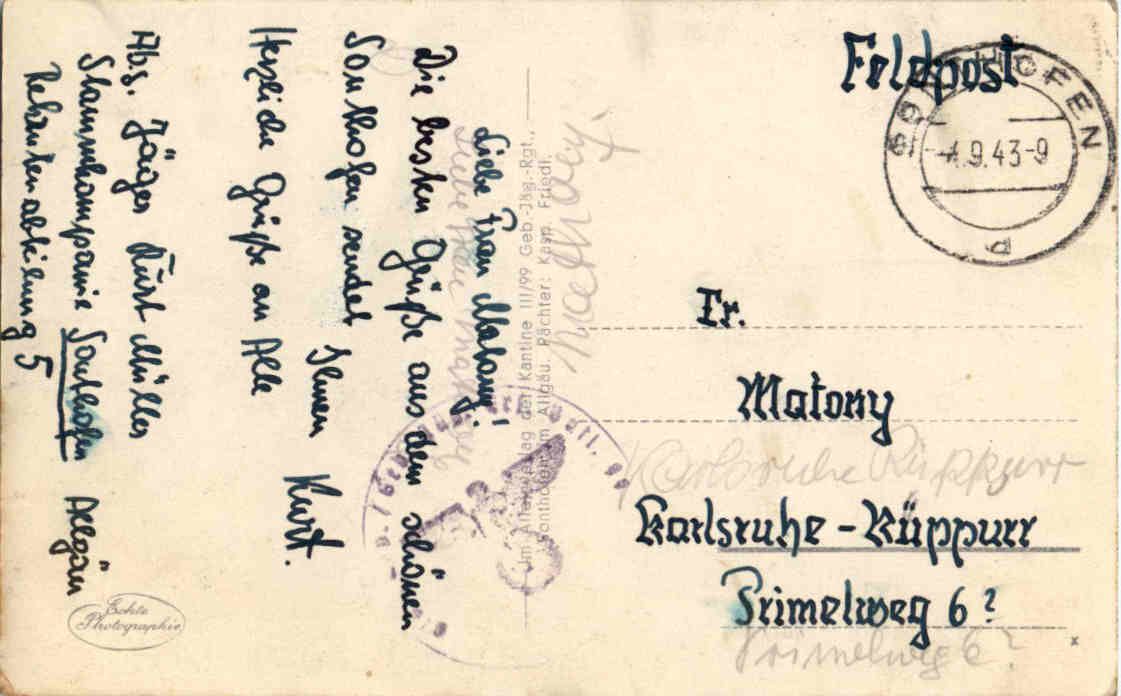 Feldpost
SONTHOFEN
4.9.43-9
Fr.
Matony
Karlsruhe Rüppurr
Karlsruhe-Rüppurr
Primelweg 6?
Primelweg 6?
Liebe Frau Matony!
Liebe Frau Matony
Die besten Grüße aus dem schönen
Sonthofen sendet Ihnen Kurt.
Herzliche Grüße an Alle
Abs. Jäger Kurt Müller
Stammkompanie Sonthofen Allgäu
Rekrutenabteilung 5
Matthaey.
Im Alleinverlag der Kantine III/99 Geb.-Jäg.-Rgt.,
Sonthofen im Allgäu. Pächter: Kasp. Friedl.
Echte
Photographie